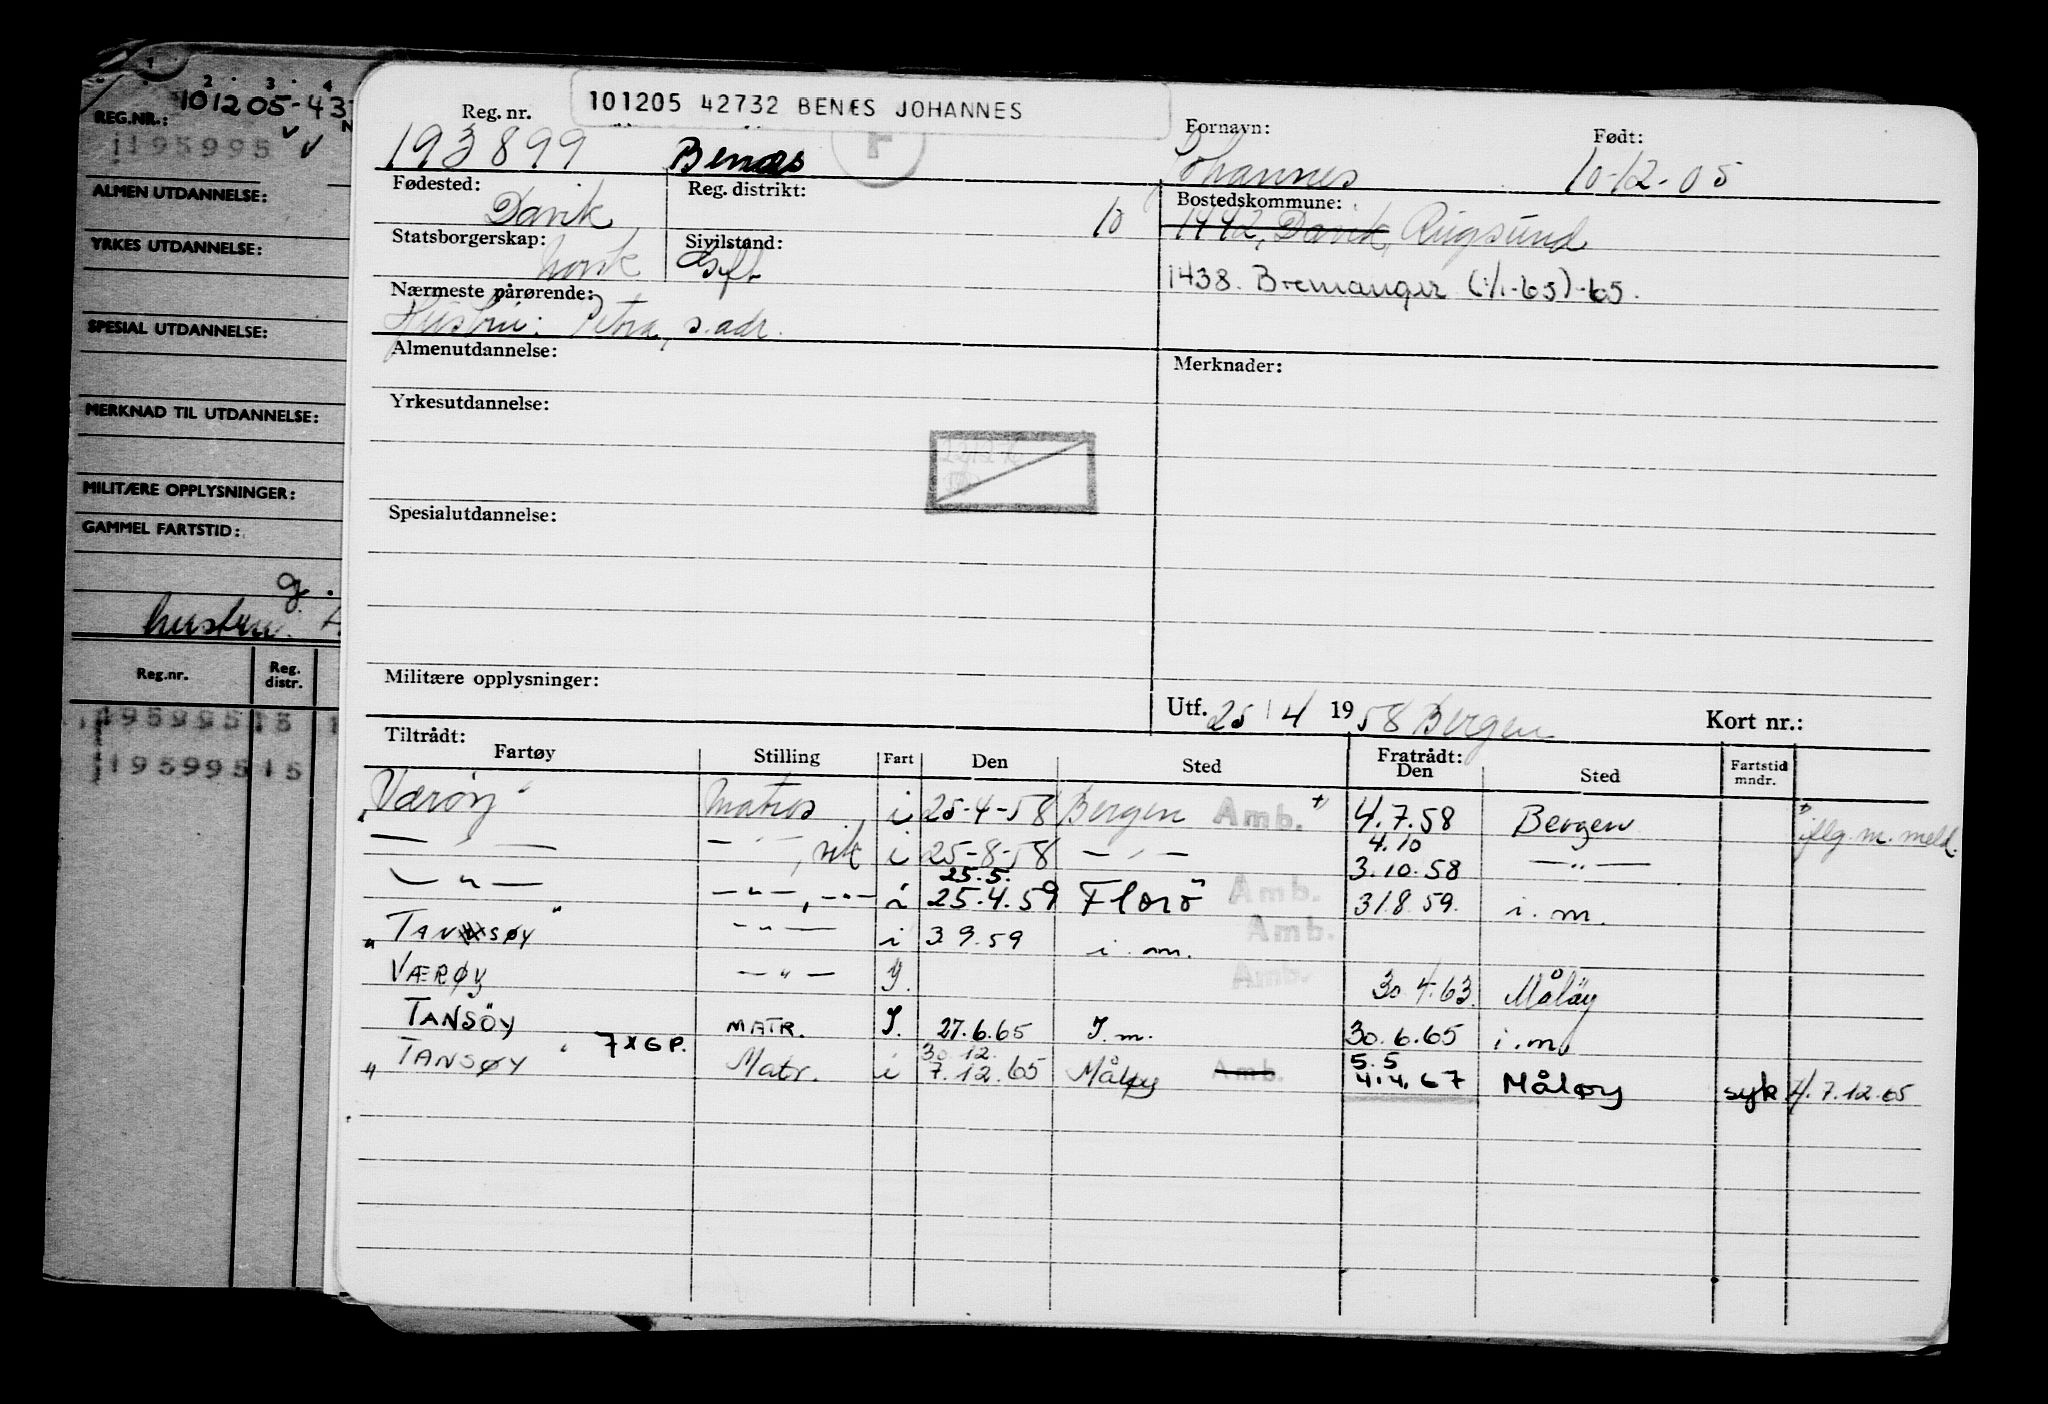 1 2 3 4
101205-43
REG.NR.:
195995
ALMEN UTDANNELSE:
YRKES UTDANNELSE:
SPESIAL UTDANNELSE:
MERKNAD TIL UTDANNELSE:
MILITÆRE OPPLYSNINGER:
GAMMEL FARTSTID:
g.
hustru
Reg.nr. Reg. distr.
195995 15
195995 15
101205 42732 BENÆS JOHANNES
Reg. nr. Fornavn: Født:
193899 Benæs Johannes 10-12-05
Fødested: Reg. distrikt: Bostedskommune:
Davik 10 1442, Davik, Rugsund
Statsborgerskap: Sivilstand:
norsk gift 1438. Bremanger (1/1-65)-65.
Nærmeste pårørende:
Hustru: Petra, s.adr.
Almenutdannelse: Merknader:
Yrkesutdannelse:
Spesialutdannelse:
Militære opplysninger:
Utf. 25/4 1958 Bergen Kort nr.:
Tiltrådt: Fratrådt:
Fartøy Stilling Fart Den Sted Den Sted Fartstid mndr.
"Værøy" Matros i 25-4-58 Bergen Amb. +) 4.7.58 Bergen +) iflg. m. meld.
— " — — " —, vik i 25-8-58 — " — 4.10 3.10.58 — " —
— " — — " —, — " — i 25.5. 25.4.59 Florö Amb. 31.8.59. i.m.
"TANSØY" — " — i 3.9.59 i.m. Amb.
VÆRØY — " — J. Amb. 30.4.63 Måløy
TANSÖY MATR. J. 27.6.65 J.m. 30.6.65 i.m.
"TANSØY" 7 x G P. Matr. i 30.12. 7.12.65 Måløy Amb. 5.5 4.4.67 Måløy syk 7.12.65